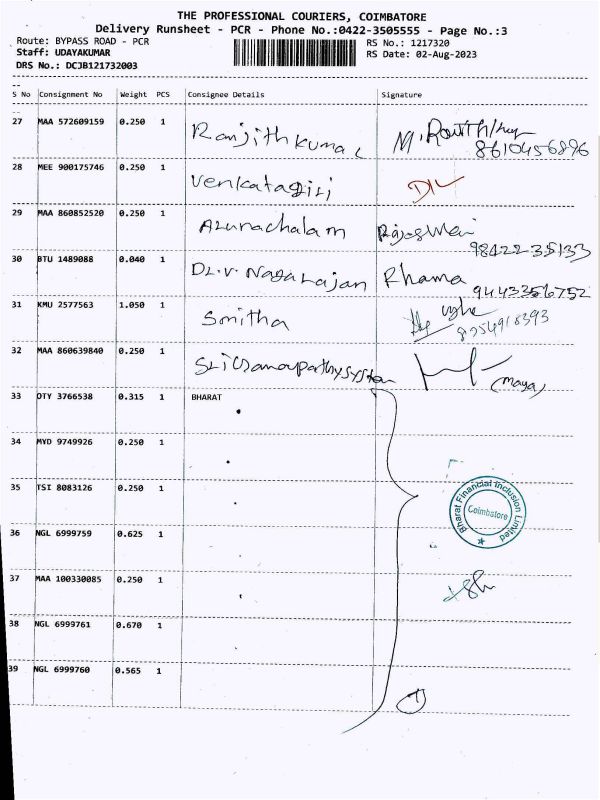 THE PROFESSIONAL COURIERS, COIMBATORE
Delivery Runsheet - PCR - Phone No.:0422-3505555 - Page No.:3
Route: BYPASS ROAD - PCR
RS No.: 1217320
Staff: UDAYAKUMAR
RS Date: 02-Aug-2023
DRS No.: DCJB121732003
S No Consignment No Weight PCS Consignee Details Signature
27 MAA 572609159 0.250 1 Ranjith Kumar M.
8610456896
28 MEE 900175746 0.250 1 Venkatagiri
29 MAA 860852520 0.250 1 Arunachalam
98422 35133
30 BTU 1489088 0.040 1 Dr.V. Nagarajan Rhama
9443356752
31 KMU 2577563 1.050 1 Smitha
32 MAA 860639840 0.250 1 (Maya)
33 OTY 3766538 0.315 1 BHARAT
34 MYD 9749926 0.250 1
35 TSI 8083126 0.250 1
Bharat Financial Inclusion Limited
Coimbatore
36 NGL 6999759 0.625 1
37 MAA 100330085 0.250 1
38 NGL 6999761 0.670 1
39 NGL 6999760 0.565 1
7